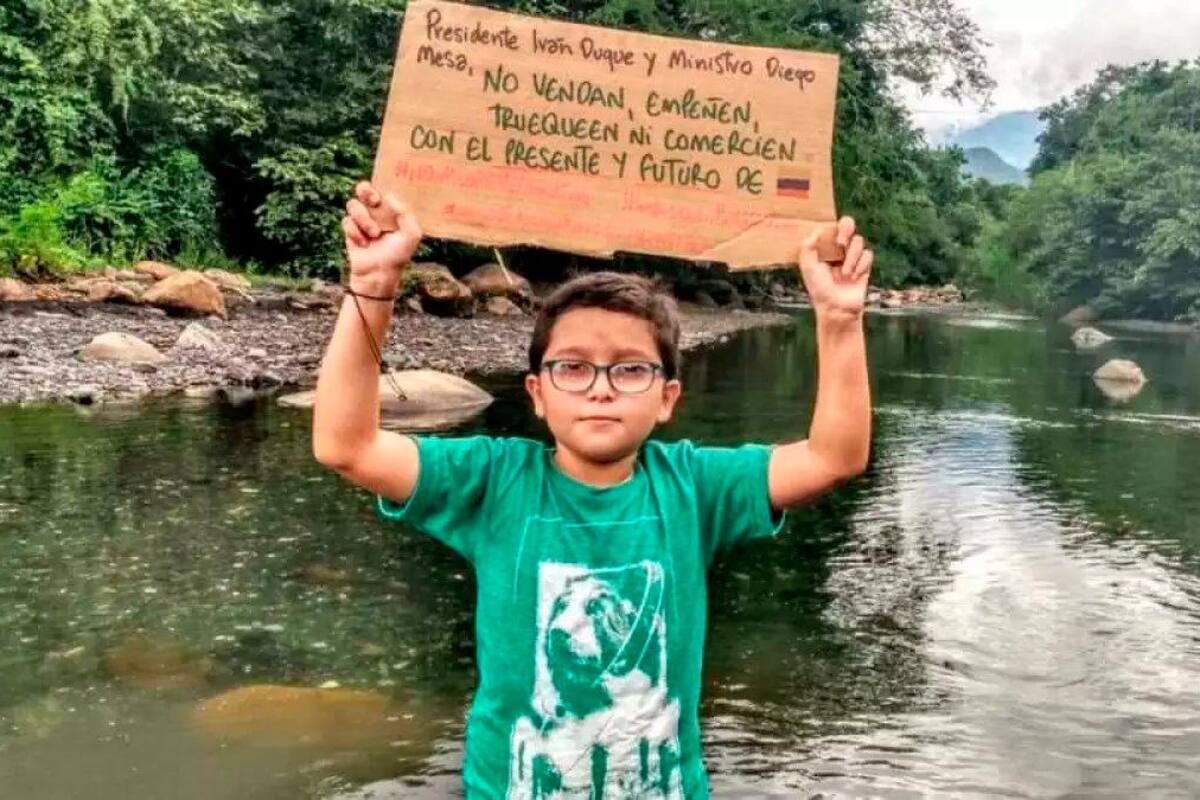 Presidente Iván Duque y Ministro Diego
Mesa, NO VENDAN, EMPEÑEN,
TRUEQUEEN NI COMERCIEN
CON EL PRESENTE Y FUTURO DE